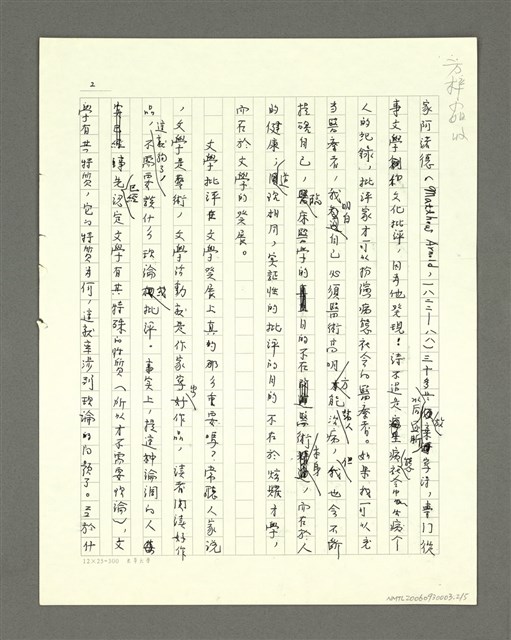 2
家阿諾德（Matthew Arnold，一八二二—八八）三十多歲後就停筆寫詩，專門從
事文學和文化批評，因為他發現：詩不過是病態社會中的病個
人的紀錄，批評家才可以扮演病態社會的醫療者。如果我可以充
當醫療者，我明白自己必須醫術高明，方能替人治病，但我也會不斷
提醒自己，臨床醫學的目的不在醫術本身，而在於人
的健康；這跟我相同，實証性的批評的目的不在於炫耀才學，
而在於文學的發展。
文學批評在文學發展上真的那麼重要嗎？常聽人家說
，文學是藝術，文學活動就是作家寫出好作品，讀者閱讀好作
品，這就夠了，不需要談什麼理論或批評。事實上，提這種論調的人
已經先認定文學有其特殊的性質（所以才不需要理論），文
學有其特質，它的特質為何，這就牽涉到理論的問題了。至於什
12×25=300
NMTL20060930003.2/5